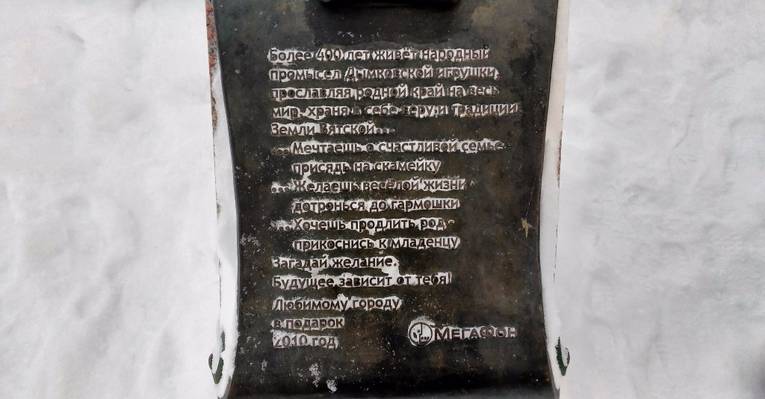 Более 400 лет живёт народный
промысел Дымковской игрушки,
прославляя родной край на весь
мир, храня в себе веру и традиции
Земли Вятской...
...Мечтаешь о счастливой семье -
присядь на скамейку
...Желаешь весёлой жизни -
дотронься до гармошки
...Хочешь продлить род -
прикоснись к младенцу
Загадай желание.
Будущее зависит от тебя!
Любимому городу
в подарок
2010 год
МЕГАФОН